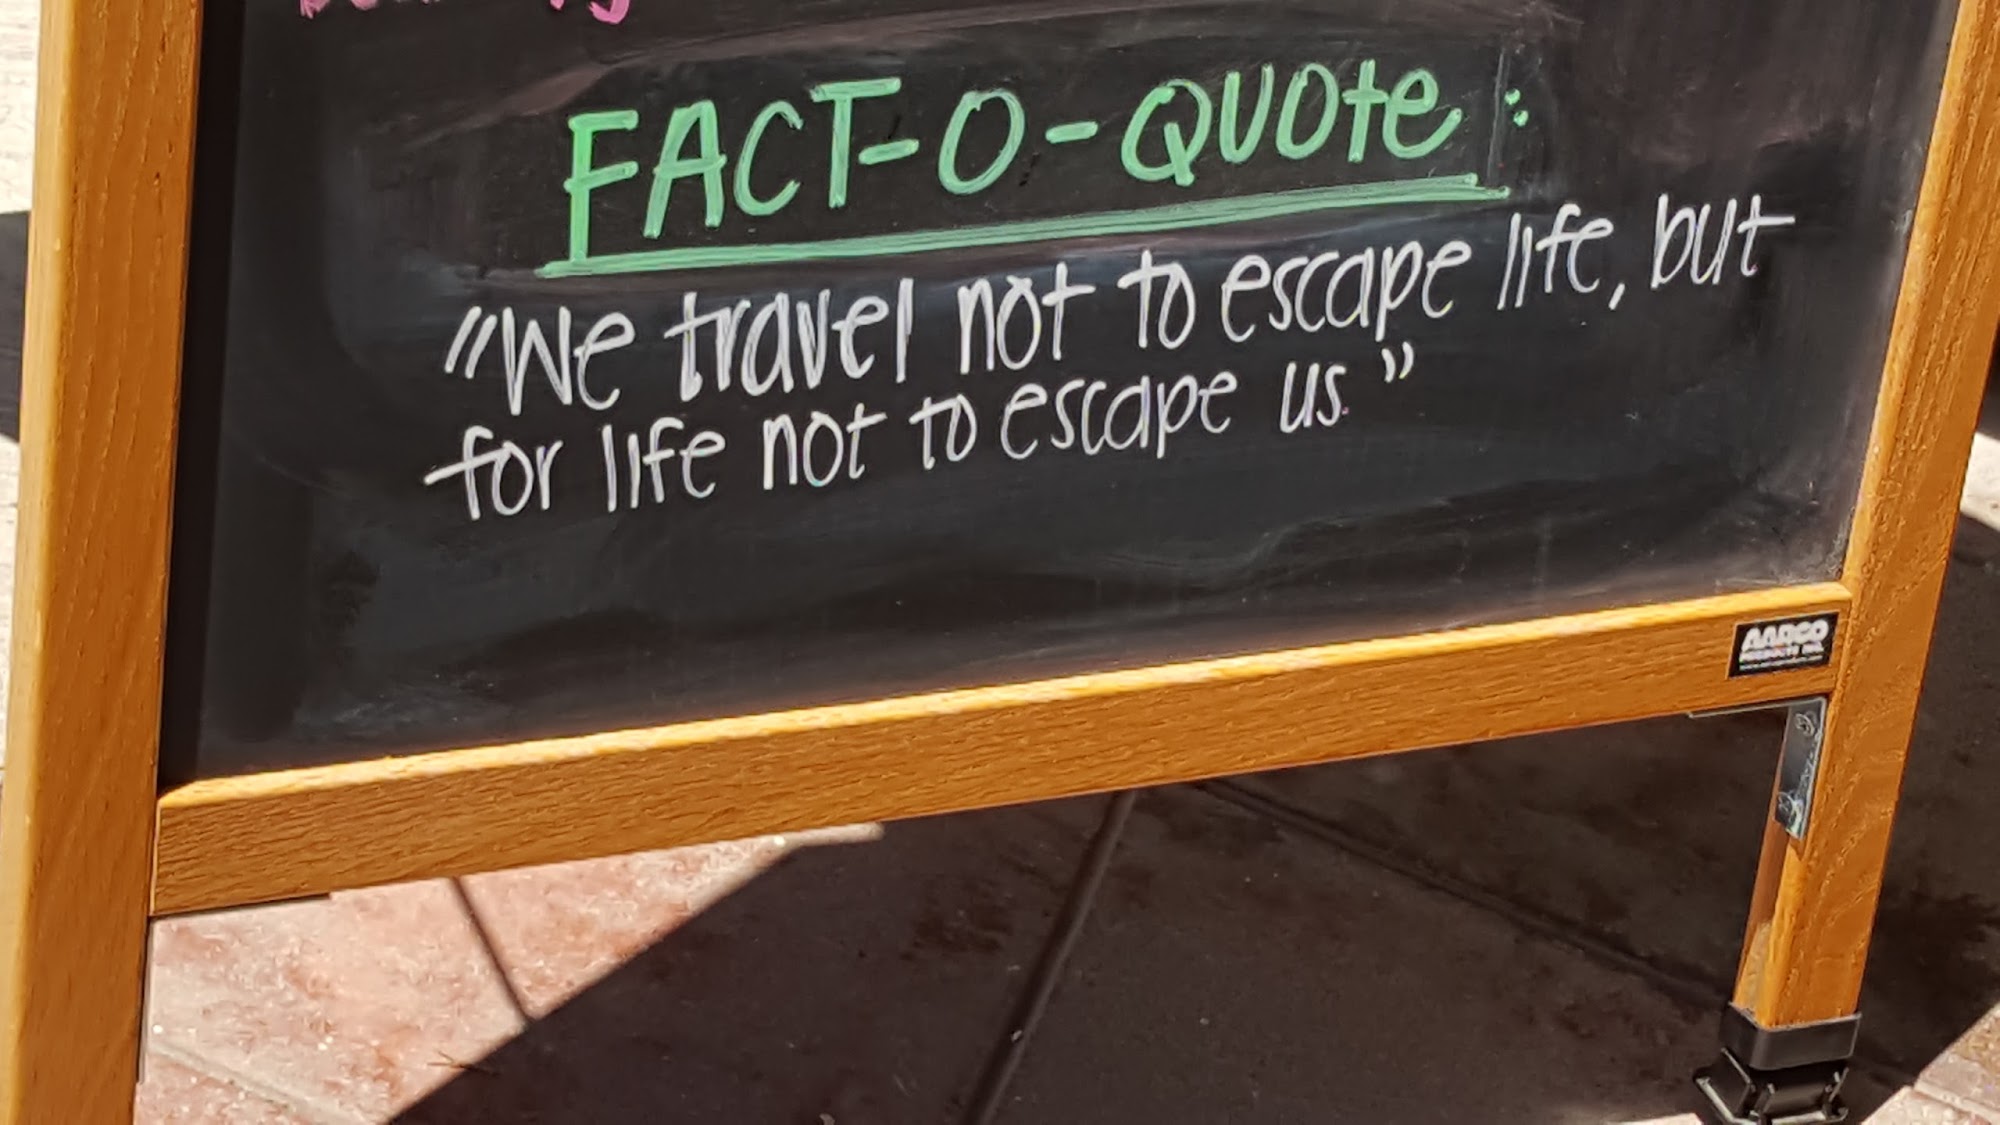 FACT-O-QUOte:
"We travel not to escape life, but
for life not to escape us."
AARCO
PRODUCTS INC.